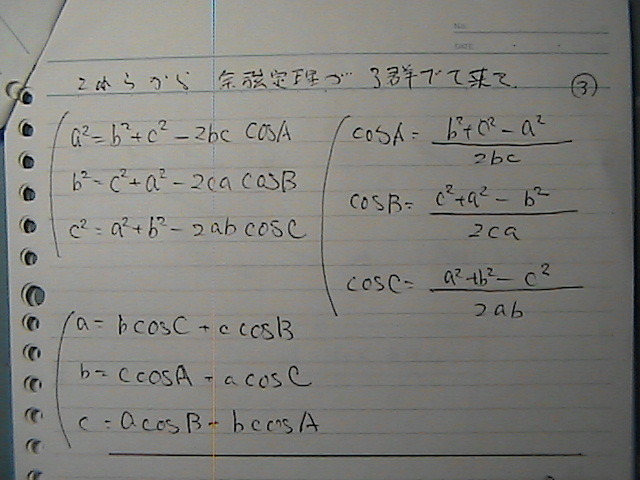 NO.
DATE
これらから 余弦定理が 3群でて来て ③
a² = b² + c² - 2bc cosA
b² = c² + a² - 2ca cosB
c² = a² + b² - 2ab cosC
cosA = (b² + c² - a²) / 2bc
cosB = (c² + a² - b²) / 2ca
cosC = (a² + b² - c²) / 2ab
a = b cosC + c cosB
b = c cosA + a cosC
c = a cosB + b cosA